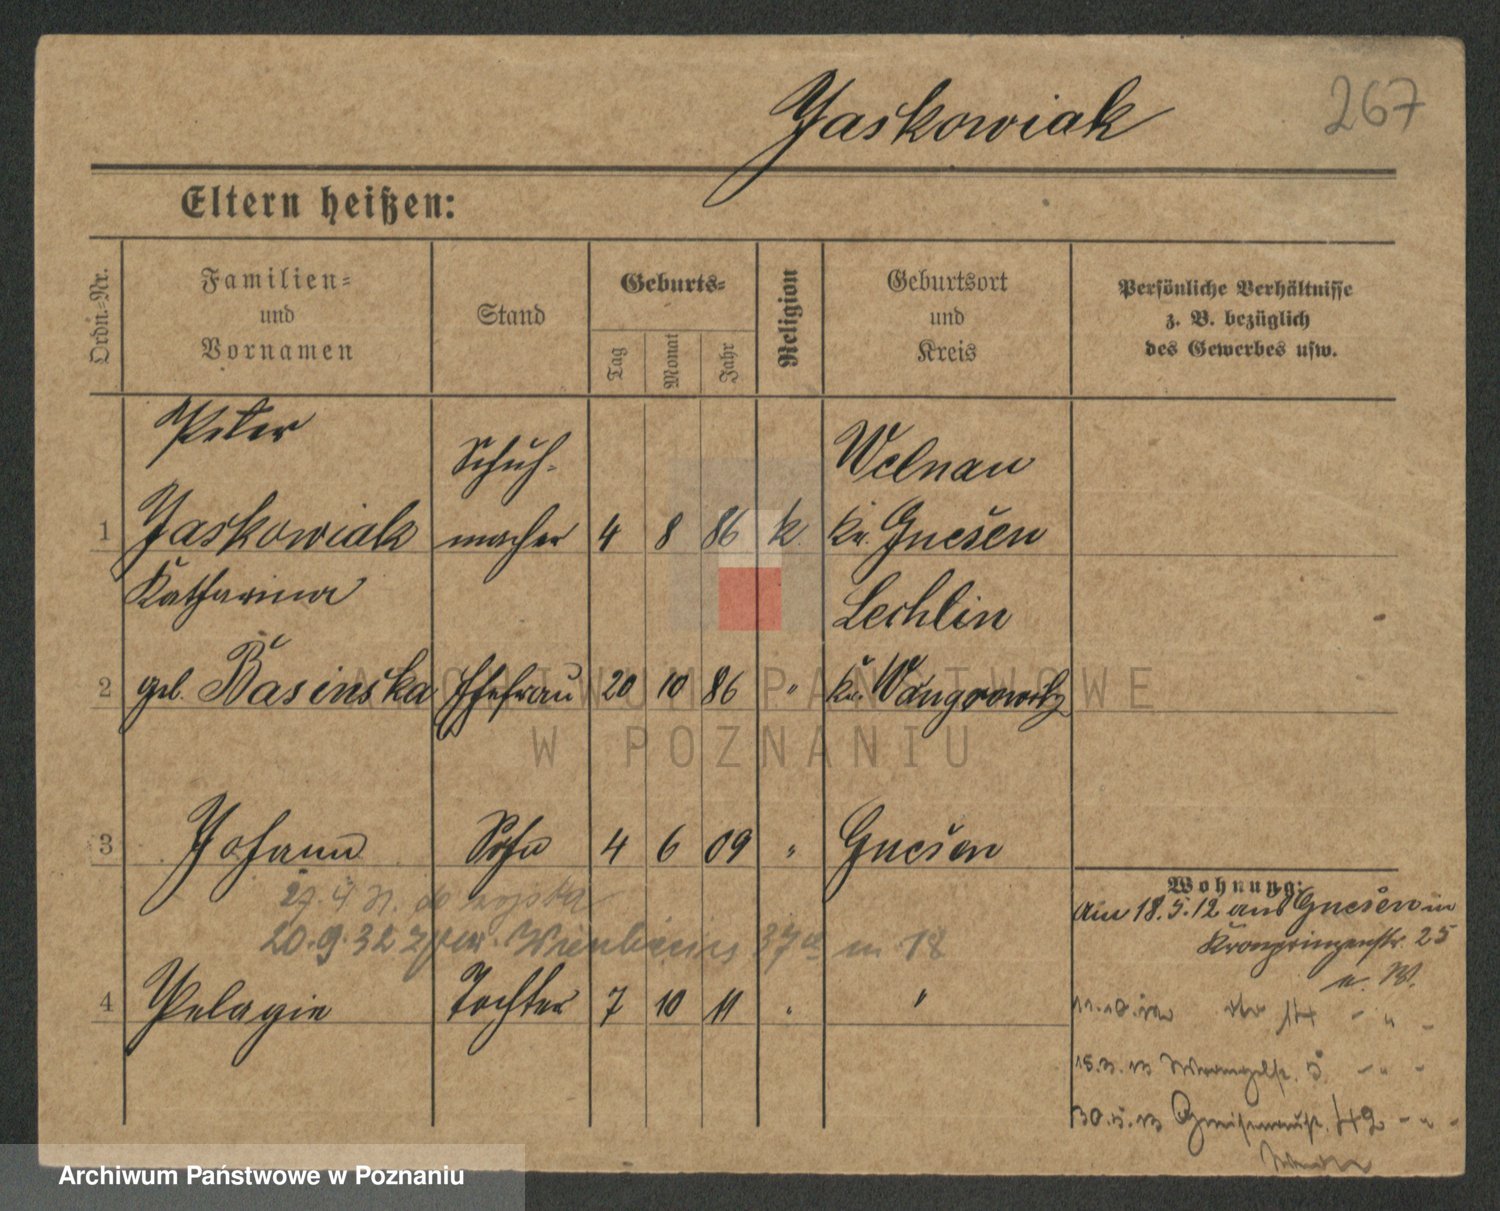 Jaskowiak 267
Eltern heißen:
Ordn.-Nr. Familien- und Vornamen Stand Geburts- Tag Monat Jahr Religion Geburtsort und Kreis Persönliche Verhältnisse z. B. bezüglich des Gewerbes usw.
Peter Schuh- Welnau
1 Jaskowiak macher 4 8 86 k. Kr. Gnesen
Katharina Lechlin
2 geb. Basinska Ehefrau 20 10 86 " Kr. Wongrowitz
ARCHIWUM PAŃSTWOWE
W POZNANIU
3 Johann Sohn 4 6 09 " Gnesen
Wohnung:
Am 18.5.12 aus Gnesen in
Kronprinzenstr. 25
20.9.32 37a m 18
4 Pelagie Tochter 7 10 11 " "
14 - " -
15.3.13 Wrangelstr. 5 - " -
30.5.13 Gneisenaustr. - " -
Archiwum Państwowe w Poznaniu